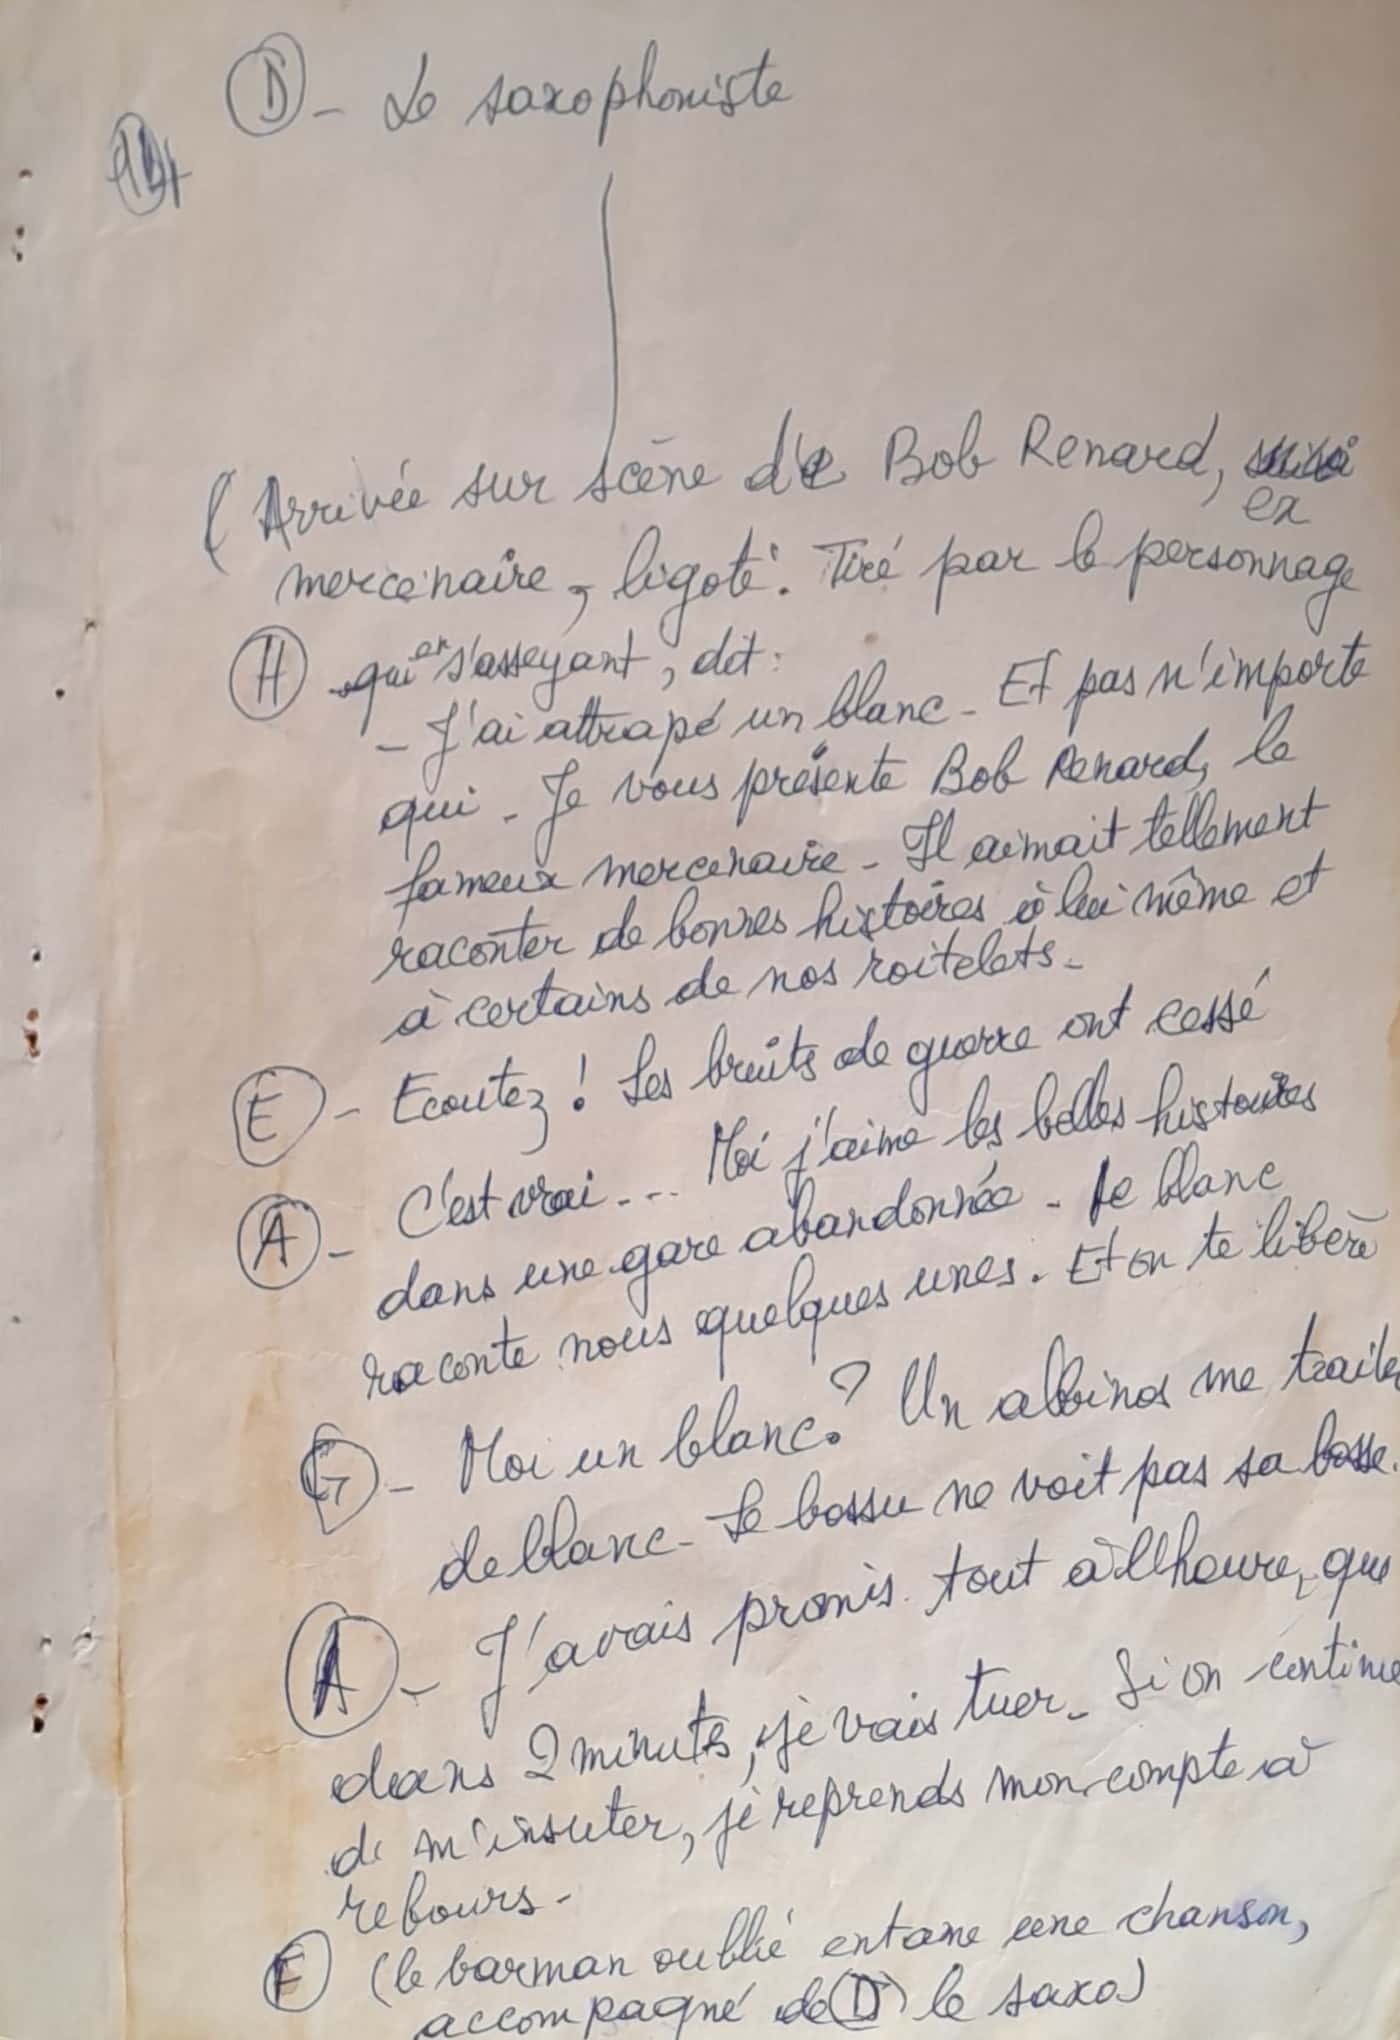 (D) - Le saxophoniste
(Arrivée sur scène de Bob Renard,
ex
mercenaire, ligoté. Tiré par le personnage
(H) qui en s'asseyant, dit :
- J'ai attrapé un blanc - Et pas n'importe
qui - Je vous présente Bob Renard, le
fameux mercenaire - Il aimait tellement
raconter de bonnes histoires à lui même et
à certains de nos roitelets -
(E) - Ecoutez ! Les bruits de guerre ont cessé
(A) - C'est vrai ... Moi j'aime les belles histoires
dans une gare abandonnée - Le blanc
raconte nous quelques unes. Et on te libère
(G) - Moi un blanc ? Un albinos me traite
de blanc - Le bossu ne voit pas sa bosse.
(A) - J'avais promis tout à l'heure, que
dans 2 minutes, je vais tuer - Si on continue
de m'insulter, je reprends mon compte à
rebours -
(F) (le barman oublié entame une chanson,
accompagné de (D) le saxo)